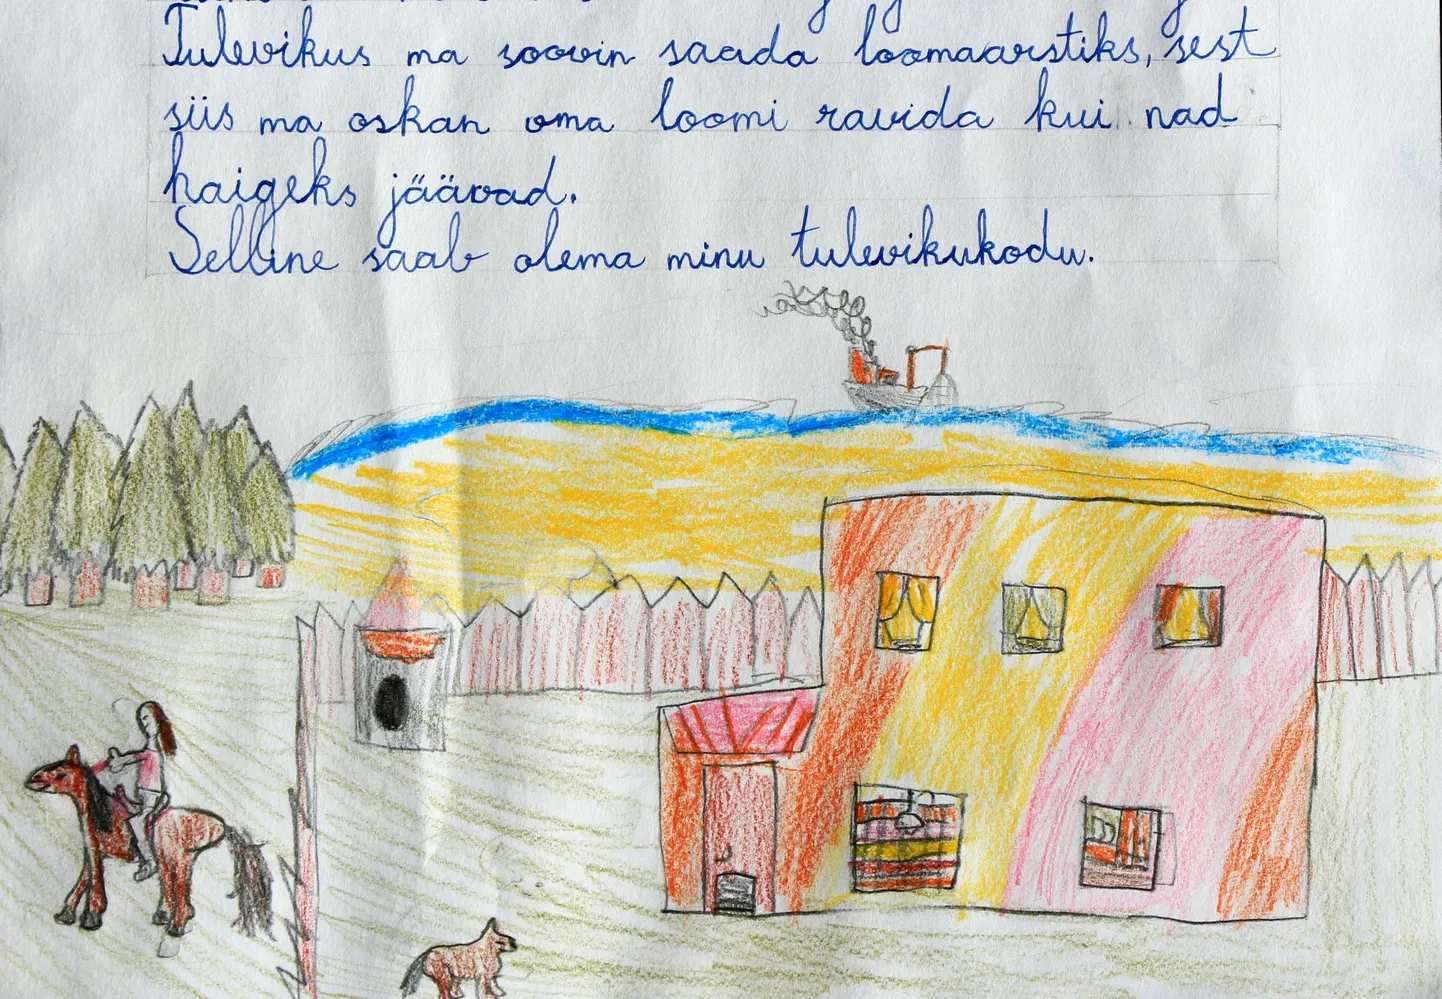 Tulevikus ma soovin saada loomaarstiks, sest
siis ma oskan oma loomi ravida kui nad
haigeks jäävad.
Selline saab olema minu tulevikukodu.